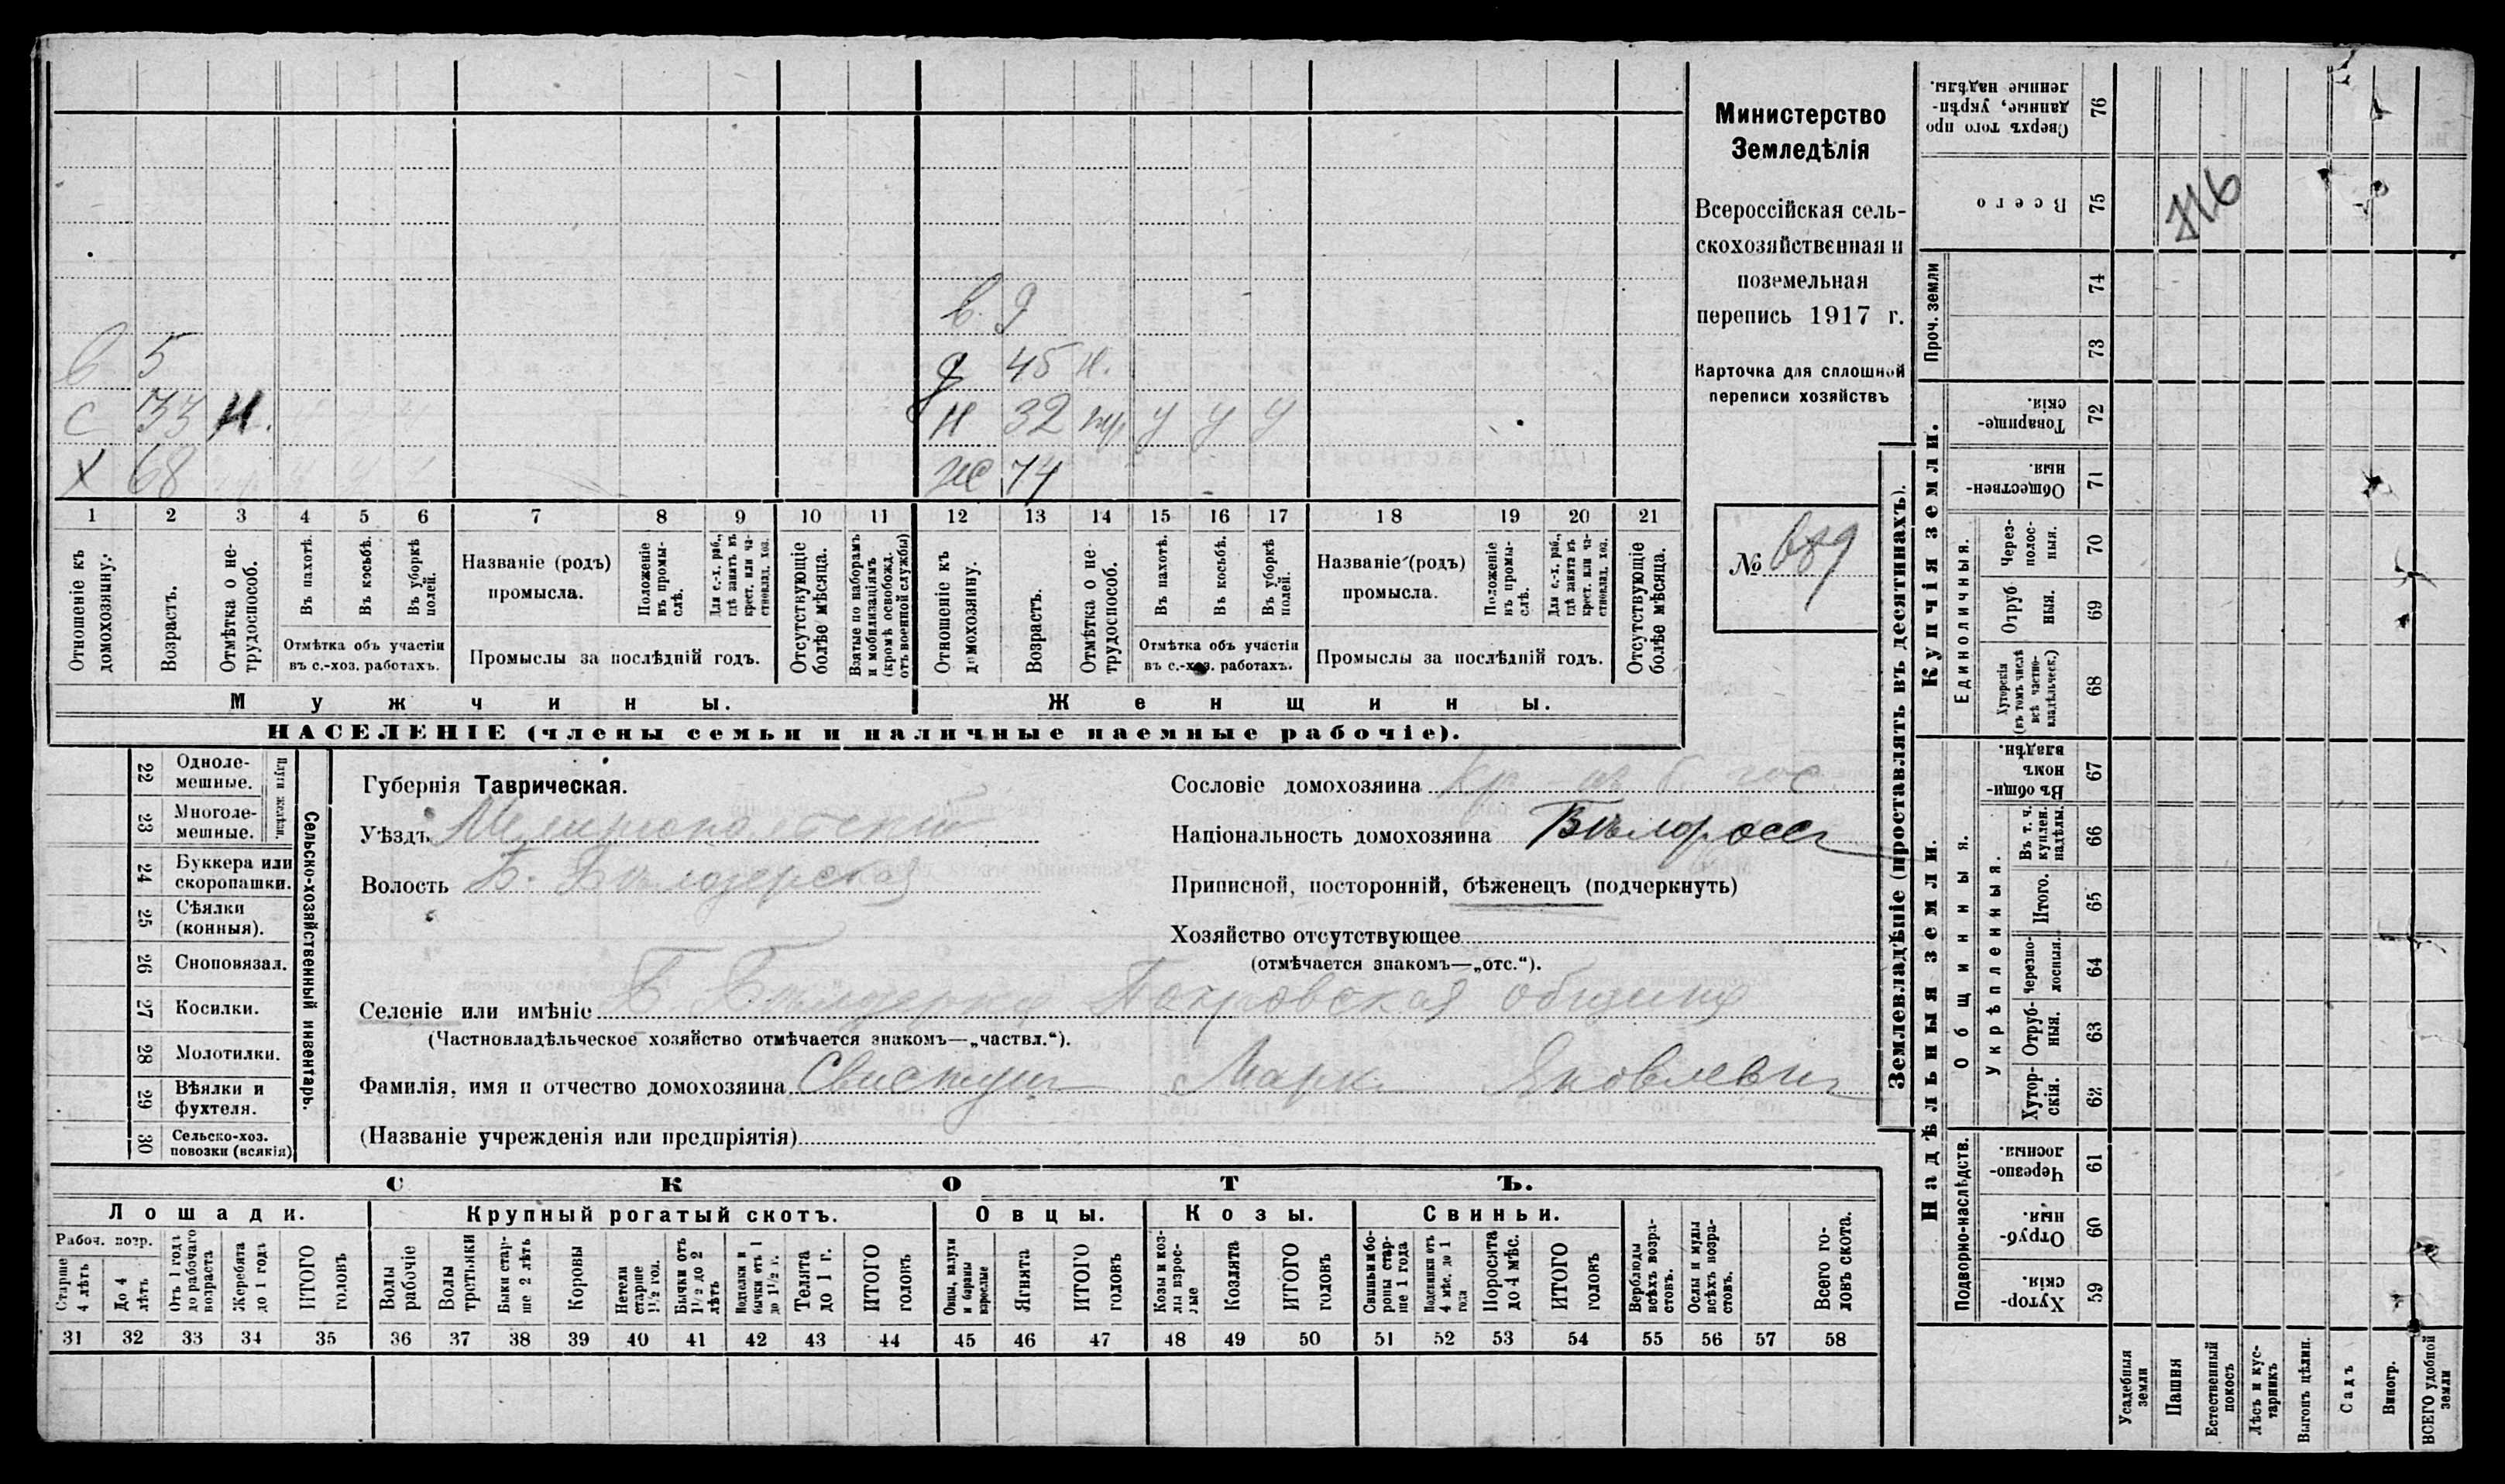 Министерство
Земледѣлія
Всероссійская сель-
скохозяйственная и
поземельная
перепись 1917 г.
Карточка для сплошной
переписи хозяйствъ
№ 689
в. 9
в 5
д 45 н.
с 33 н.
н 32 у у у
х 68
ж 74
1 2 3 4 5 6 7 8 9 10 11 12 13 14 15 16 17 18 19 20 21
Отношеніе къ домохозяину.
Возрастъ.
Отмѣтка о не-трудоспособ.
Въ пахотѣ.
Въ косьбѣ.
Въ уборкѣ полей.
Отмѣтка объ участіи
въ с.-хоз. работахъ.
Названіе (родъ)
промысла.
Положеніе въ промы-слѣ.
Для с.-х. раб., гдѣ занятъ въ крест. или ча-стновлад. хоз.
Промыслы за послѣдній годъ.
Отсутствующіе болѣе мѣсяца.
Взятые по наборамъ и мобилизаціямъ (кромѣ освобожд. отъ военной службы)
Отношеніе къ домохозяину.
Возрастъ.
Отмѣтка о не-трудоспособ.
Въ пахотѣ.
Въ косьбѣ.
Въ уборкѣ полей.
Отмѣтка объ участіи
въ с.-хоз. работахъ.
Названіе (родъ)
промысла.
Положеніе въ промы-слѣ.
Для с.-х. раб., гдѣ занята въ крест. или ча-стновлад. хоз.
Промыслы за послѣдній годъ.
Отсутствующіе болѣе мѣсяца.
Мужчины.
Женщины.
НАСЕЛЕНІЕ (члены семьи и наличные наемные рабочіе).
22 Одноле-мешные.
23 Многоле-мешные.
Плуги желѣзн.
24 Буккера или скоропашки.
25 Сѣялки (конныя).
26 Сноповязал.
27 Косилки.
28 Молотилки.
29 Вѣялки и фухтеля.
30 Сельско-хоз. повозки (всякія)
Сельско-хозяйственный инвентарь.
Губернія Таврическая.
Уѣздъ Мелитопольскій
Волость Б. Бѣлозерская
Сословіе домохозяина кр-нъ б. гос.
Національность домохозяина Бѣлороссъ
Приписной, посторонній, бѣженецъ (подчеркнуть)
Хозяйство отсутствующее
(отмѣчается знакомъ—„отс.“).
Селеніе или имѣніе Б. Бѣлозерка Покровская община
(Частновладѣльческое хозяйство отмѣчается знакомъ—„частвл.“).
Фамилія, имя и отчество домохозяина Свистунъ Маркъ Яковлевичъ
(Названіе учрежденія или предпріятія)
СКОТЪ.
Лошади.
Крупный рогатый скотъ.
Овцы.
Козы.
Свиньи.
Рабоч. возр.
Старше 4 лѣтъ
До 4 лѣтъ
Отъ 1 года до рабочаго возраста
Жеребята до 1 года
ИТОГО головъ
Волы рабочіе
Волы третьяки
Быки стар-ше 2 лѣтъ
Коровы
Нетели старше 1½ год.
Бычки отъ 1½ до 2 лѣтъ
Подтелки и бычки отъ 1 до 1½ г.
Телята до 1 г.
ИТОГО головъ
Овцы, валухи и бараны взрослые
Ягнята
ИТОГО головъ
Козы и коз-лы взрос-лые
Козлята
ИТОГО головъ
Свиньи и бо-ровы стар-ше 1 года
Подсвинки отъ 4 мѣс. до 1 года
Поросята до 4 мѣс.
ИТОГО головъ
Верблюды всѣхъ возра-стовъ.
Ослы и мулы всѣхъ возра-стовъ.
Всего го-ловъ скота.
31 32 33 34 35 36 37 38 39 40 41 42 43 44 45 46 47 48 49 50 51 52 53 54 55 56 57 58
Землевладѣніе (проставлять въ десятинахъ).
Купчія земли.
Надѣльныя земли.
Проч. земли
Единоличныя.
Общинныя.
Укрѣпленныя.
Подворно-наслѣдств.
Сверхъ того про данные, укрѣп-ленные надѣлы. 76
Всего 75
74
73
Товарище-скія. 72
Обществен-ныя. 71
Через-полос-ныя. 70
Отруб ныя. 69
Хуторскія (въ томъ числѣ всѣ частно-владѣльческ.) 68
Въ общин-номъ владѣн. 67
Въ т. ч. куплен. надѣлы. 66
Итого. 65
Черезпо-лосныя. 64
Отруб-ныя. 63
Хутор-скія. 62
Черезпо-лосныя. 61
Отруб-ныя. 60
Хутор-скія. 59
Усадебныя земли
Пашня
Естественный покосъ
Лѣсъ и кус-тарникъ
Выгонъ цѣлин.
Садъ
Виногр.
ВСЕГО удобной земли